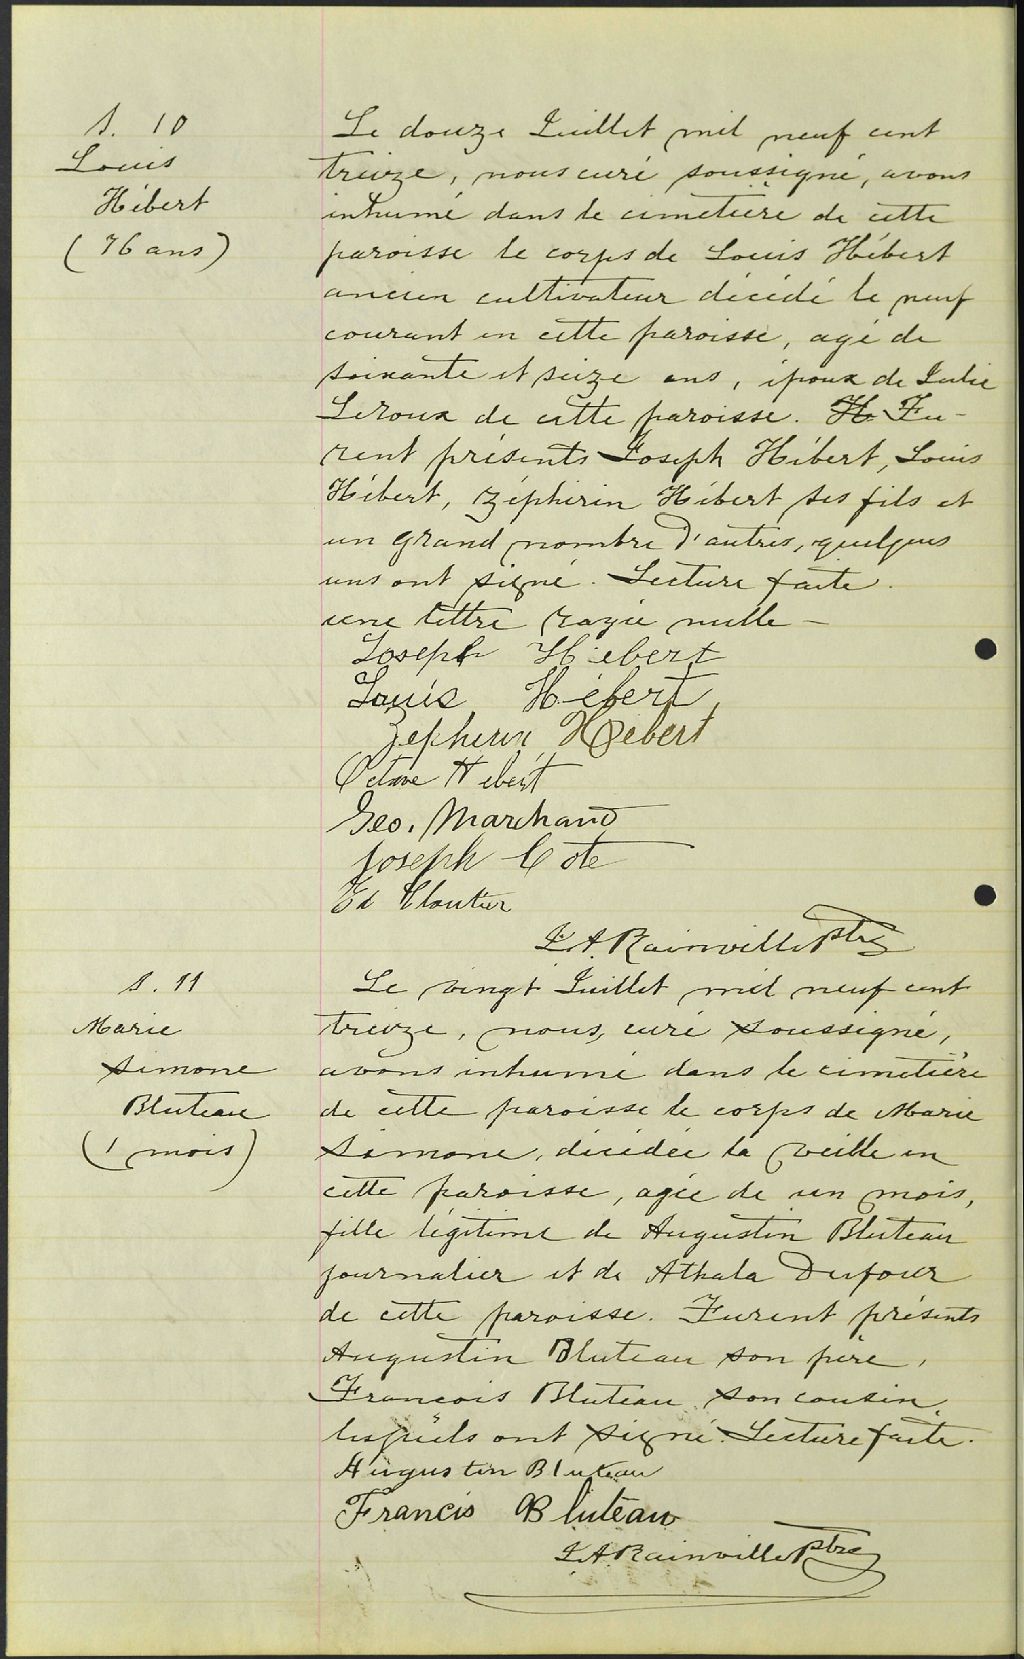 S. 10
Louis
Hébert
(76 ans)
Le douze Juillet mil neuf cent
treize, nous curé soussigné, avons
inhumé dans le cimetière de cette
paroisse le corps de Louis Hébert
ancien cultivateur décédé le neuf
courant en cette paroisse, agé de
soixante et seize ans, époux de Julie
Leroux de cette paroisse. H Fu-
rent présents Joseph Hébert, Louis
Hébert, Zéphirin Hébert ses fils et
un grand nombre d'autres, quelques
uns ont signé. Lecture faite.
une lettre rayée nulle -
Joseph Hebert
Louis Hébert
Zephirin Hebert
Octave Hebert
Geo. Marchand
Joseph Cote
Ed Cloutier
J.A. Rainville Ptre
S. 11
Marie
Simone
Bluteau
(1 mois)
Le vingt Juillet mil neuf cent
treize, nous, curé soussigné,
avons inhumé dans le cimetière
de cette paroisse le corps de Marie
Simone, décédée la veille en
cette paroisse, agée de un mois,
fille légitime de Augustin Bluteau
journalier et de Athala Dufour
de cette paroisse. Furent présents
Augustin Bluteau son père,
Francois Bluteau son cousin,
lesquels ont signé. Lecture faite.
Augustin Bluteau
Francis Bluteau
J.A. Rainville Ptre